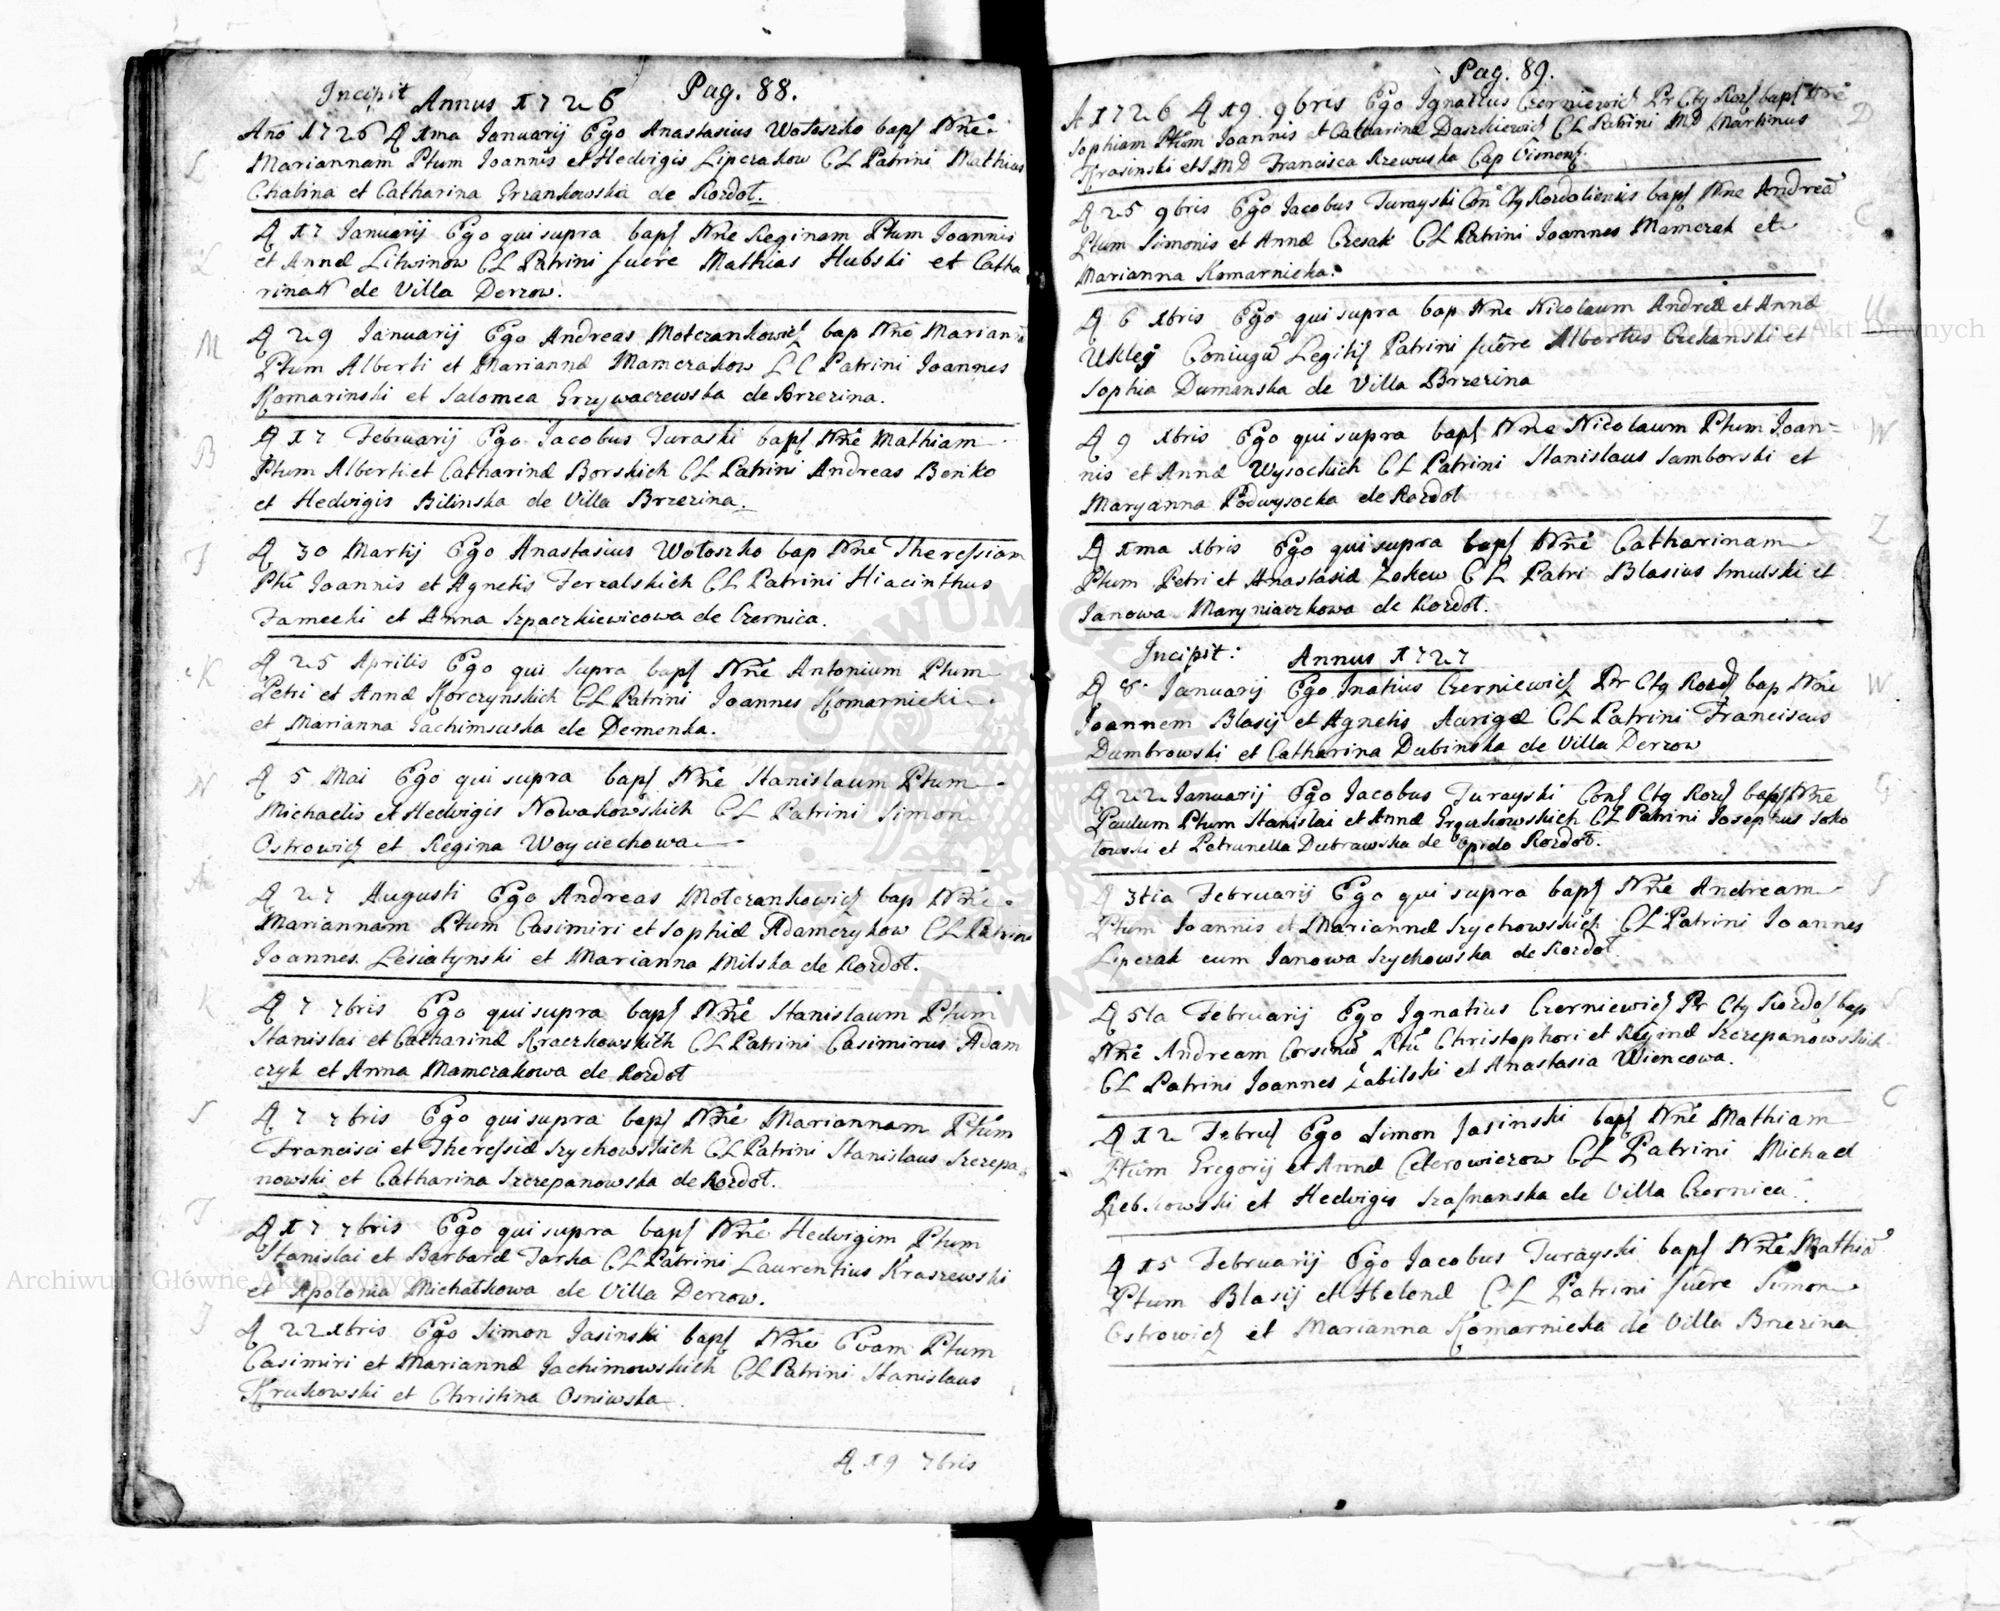 Pag. 88.
Incipit Annus 1726
Año 1726 D 1ma Januarij Ego Anastasius Wołoszko bapt Nñe
Mariannam Ptum Joannis et Hedvigis Liperakow CL Patrini Mathias
Chabina et Catharina Grzankowska de Rozdoł.
L
D 17 Januarij Ego qui supra bapt Nñe Reginam Ptum Joannis
et Annæ Litwinow CL Patrini fuere Mathias Hubski et Catha
rina N de Villa Derzow.
L
D 29 Januarij Ego Andreas Moterankowicz bap Nñe Marianã
Ptum Alberti et Mariannæ Mamczakow LC Patrini Joannes
Komarinski et Salomea Grzywaczewska de Brzezina.
M
D 17 Februarij Ego Jacobus Turaski bapt Nñe Mathiam
Ptum Alberti et Catharinæ Borskich CL Patrini Andreas Benko
et Hedvigis Bilinska de Villa Brzezina.
B
D 30 Martij Ego Anastasius Wołoszko bap Nñe Theressiam
Ptũ Joannis et Agnetis Ferzalskich CL Patrini Hiacinthus
Famecki et Anna Szpaczkiewicowa de Czernica.
F
D 25 Aprilis Ego qui supra bapt Nñe Antonium Ptum
Petri et Annæ Korczynskich CL Patrini Joannes Komarnicki
et Marianna Jachimsuska de Demenka.
K
D 5 Mai Ego qui supra bapt Nñe Stanislaum Ptum
Michaelis et Hedvigis Nowakowskich CL Patrini Simon
Ostrowicz et Regina Woyciechowa
N
D 27 Augusti Ego Andreas Moterankowicz bap Nñe
Mariannam Ptum Casimiri et Sophiæ Adamczykow CL Patrini
Joannes Lesiatynski et Marianna Milska de Rozdoł.
A
D 7 7bris Ego qui supra bapt Nñe Stanislaum Ptum
Stanislai et Catharinæ Kraczkowskich CL Patrini Casimirus Adam
czyk et Anna Mamczakowa de Rozdoł
K
D 7 7bris Ego qui supra bapt Nñe Mariannam Ptum
Francisci et Theressiæ Szychowskich CL Patrini Stanislaus Szczepa
nowski et Catharina Szczepanowska de Rozdoł.
S
D 17 7bris Ego qui supra bapt Nñe Hedvigim Ptum
Stanislai et Barbaræ Tarka CL Patrini Laurentius Kraszewski
et Apolonia Michałkowa de Villa Derzow.
T
D 22 Xbris Ego Simon Jasinski bapt Nñe Evam Ptum
Casimiri et Mariannæ Jachimowskich CL Patrini Stanislaus
Krukowski et Christina Osniwska
J
D 19 7bris
Pag. 89.
A 1726 D 19 9bris Ego Ignatius Czerniewicz Pr Ctg Rozd bapt Nñe
Sophiam Ptum Joannis et Catharinæ Daszkiewicz CL Patrini MD Martinus
Krasinski et MD Francisca Rzewuska Cap
D
D 25 9bris Ego Jacobus Turayski Con Ctg Rozdoliensis bapt Nñe Andreã
Ptum Simonis et Annæ Czesak CL Patrini Joannes Mamczak et
Marianna Komarnicka.
C
D 6 Xbris Ego qui supra bap Nñe Nicolaum Andreæ et Annæ
Ukley Coniugũ Legitiṣ Patrini fuere Albertus Czekanski et
Sophia Dumanska de Villa Brzezina
U
D 9 Xbris Ego qui supra bapt Nñe Nicolaum Ptum Joan=
nis et Annæ Wysockich CL Patrini Stanislaus Samborski et
Maryanna Podwysocka de Rozdoł
W
D 1ma Xbris Ego qui supra bapt Nñe Catharinam
Ptum Petri et Anastasiæ Zokew CL Patri Blasius Smulski et
Janowa Maryniaczkowa de Rozdoł.
Z
Incipit: Annus 1727
D 8 Januarij Ego Inatius Czerniewicz Pr Ctg Rozd bap Nñe
Joannem Blasij et Agnetis Aurigæ CL Patrini Franciscus
Dumbrowski et Catharina Dubinska de Villa Derzow
W
D 22 Januarij Ego Jacobus Turayski Cons Ctg Rozd bapt Nñe
Paulum Ptum Stanislai et Annæ CL Patrini Josephus Soko
łowski et Petrunella Dubrawska de Opido Rozdoł.
G
D 3tia Februarij Ego qui supra bapt Nñe Andream
Ptum Joannis et Mariannæ Szychowskich CL Patrini Joannes
Liperak cum Janowa Szychowska de Rozdoł
S
D 5ta Februarij Ego Ignatius Czerniewicz Pr Ctg Rozdoł bap
Nñe Andream Corsinũ Ptũ Christophori et Reginæ Szczepanowskich
CL Patrini Joannes Zabilski et Anastasia Wiencowa.
S
D 12 Febru Ego Simon Jasinski bapt Nñe Mathiam
Ptum Gregorij et Annæ Ceterowiczow CL Patrini Michael
et Hedvigis de Villa Czernica.
C
D 15 Februarij Ego Jacobus Turayski bapt Nñe Mathiã
Ptum Blasij et Helenæ CL Patrini fuere Simon
Ostrowicz et Marianna Komarnicka de Villa Brzezina
Archiwum Główne Akt Dawnych
Archiwum Główne Akt Dawnych
ARCHIWUM GŁÓWNE AKT DAWNYCH